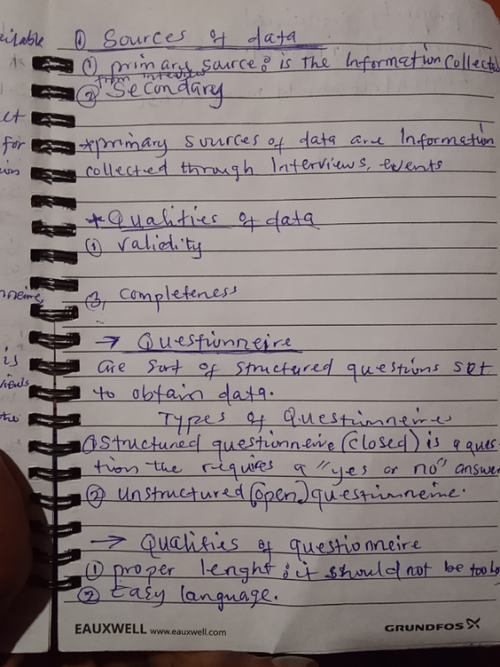 ailable
① Sources of data
① primary source: is the Information Collected
from interview
② Secondary
ect
for
*primary sources of data are Information
collected through Interviews, events
*Qualities of data
① validity
③, completeness
→ Questionneire
is
are sort of structured questions set
views
to obtain data.
the
Types of Questionneires
① Structured questionneire (closed) is a ques-
tion the requires a "yes or no" answer
② unstructured (open) questionneire.
→ Qualities of questionneire
① proper lenght; it should not be too lo
② Easy language.
EAUXWELL www.eauxwell.com
GRUNDFOS X